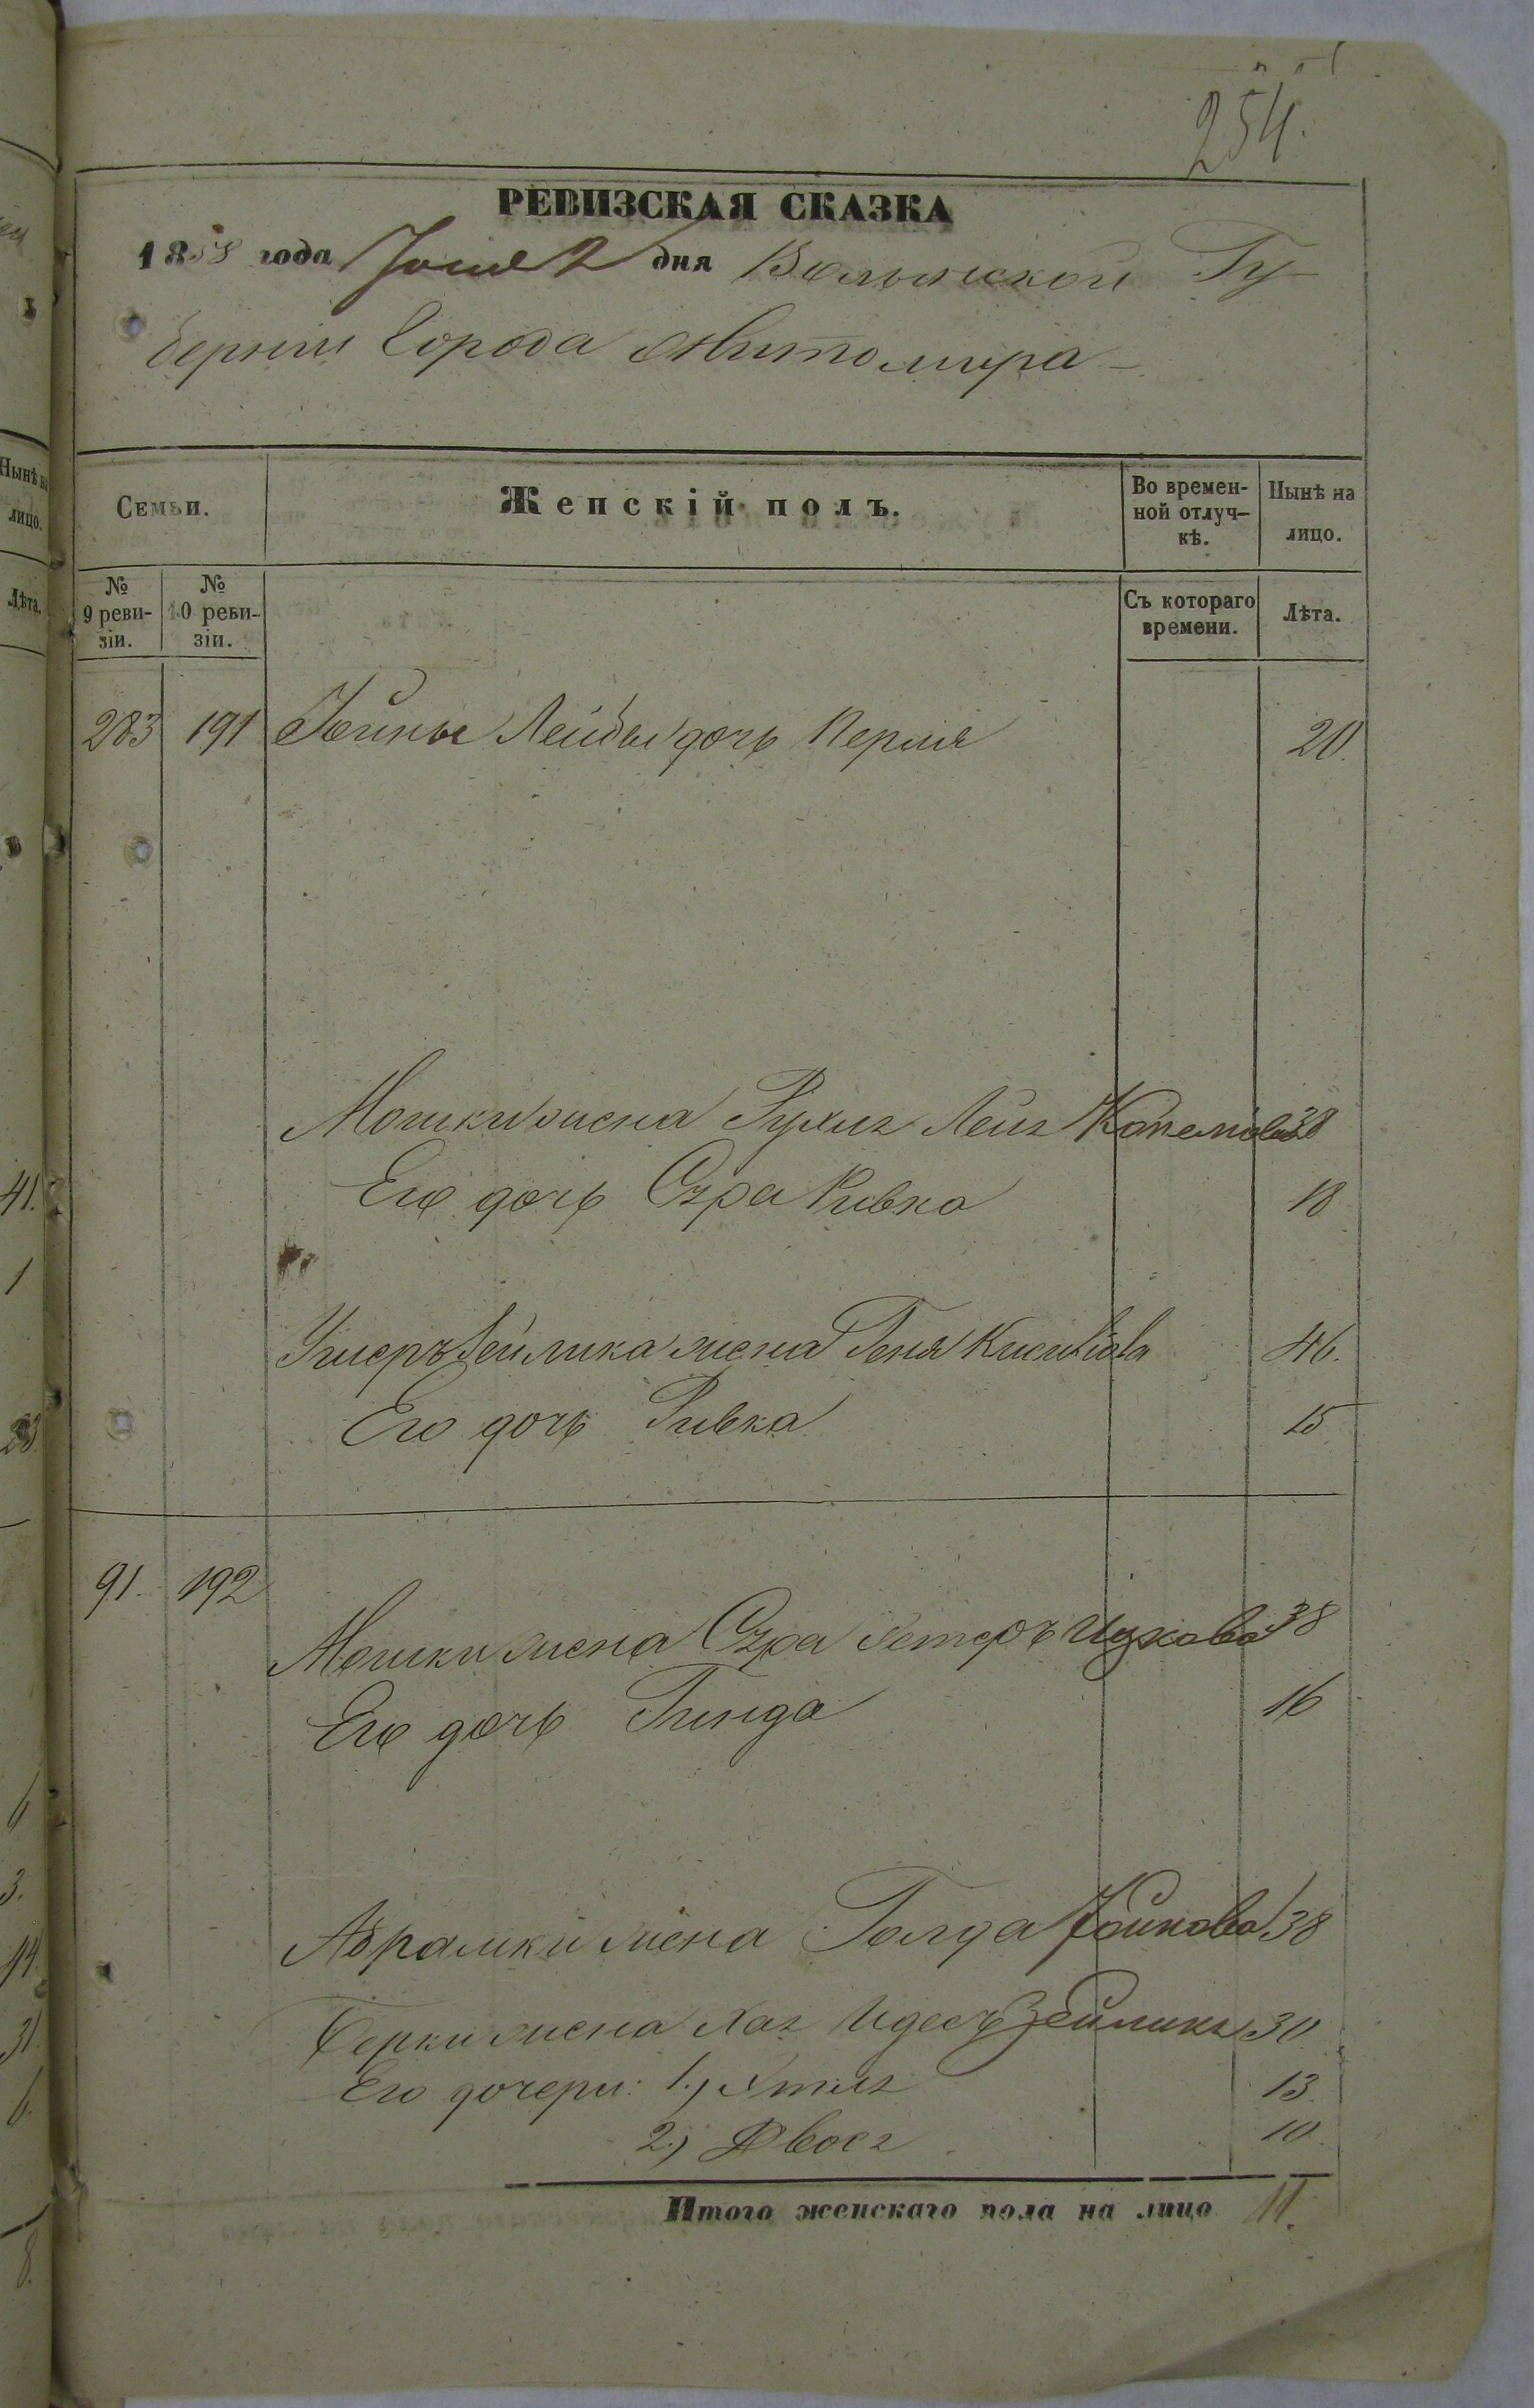 254.
РЕВИЗСКАЯ СКАЗКА
1858 года Іюня 2 дня Волынской Гу-
берніи Города Житомира
Семьи.
Женскій полъ.
Во времен-
ной отлуч-
кѣ.
Нынѣ на
лицо.
№
9 реви-
зіи.
№
10 реви-
зіи.
Съ котораго
времени.
Лѣта.
283 191 Лейбы дочь Перля 20.
Мошки жена Рухля Лея 38
Его дочь Сура Ривка 18
Лейлика жена Геня 46.
Его дочь Ривка 15
91. 192
Мошки жена Сура Естеръ Ицкова 38
Его дочь Гинда 16
Абрамки жена Голда 38
Берки жена Хая Идесъ Зейлика 30
Его дочери: 1.) Этля 13.
2.) Двося 10.
Итого женскаго пола на лицо 11.
Нынѣ на
лицо.
Лѣта.
41.
1